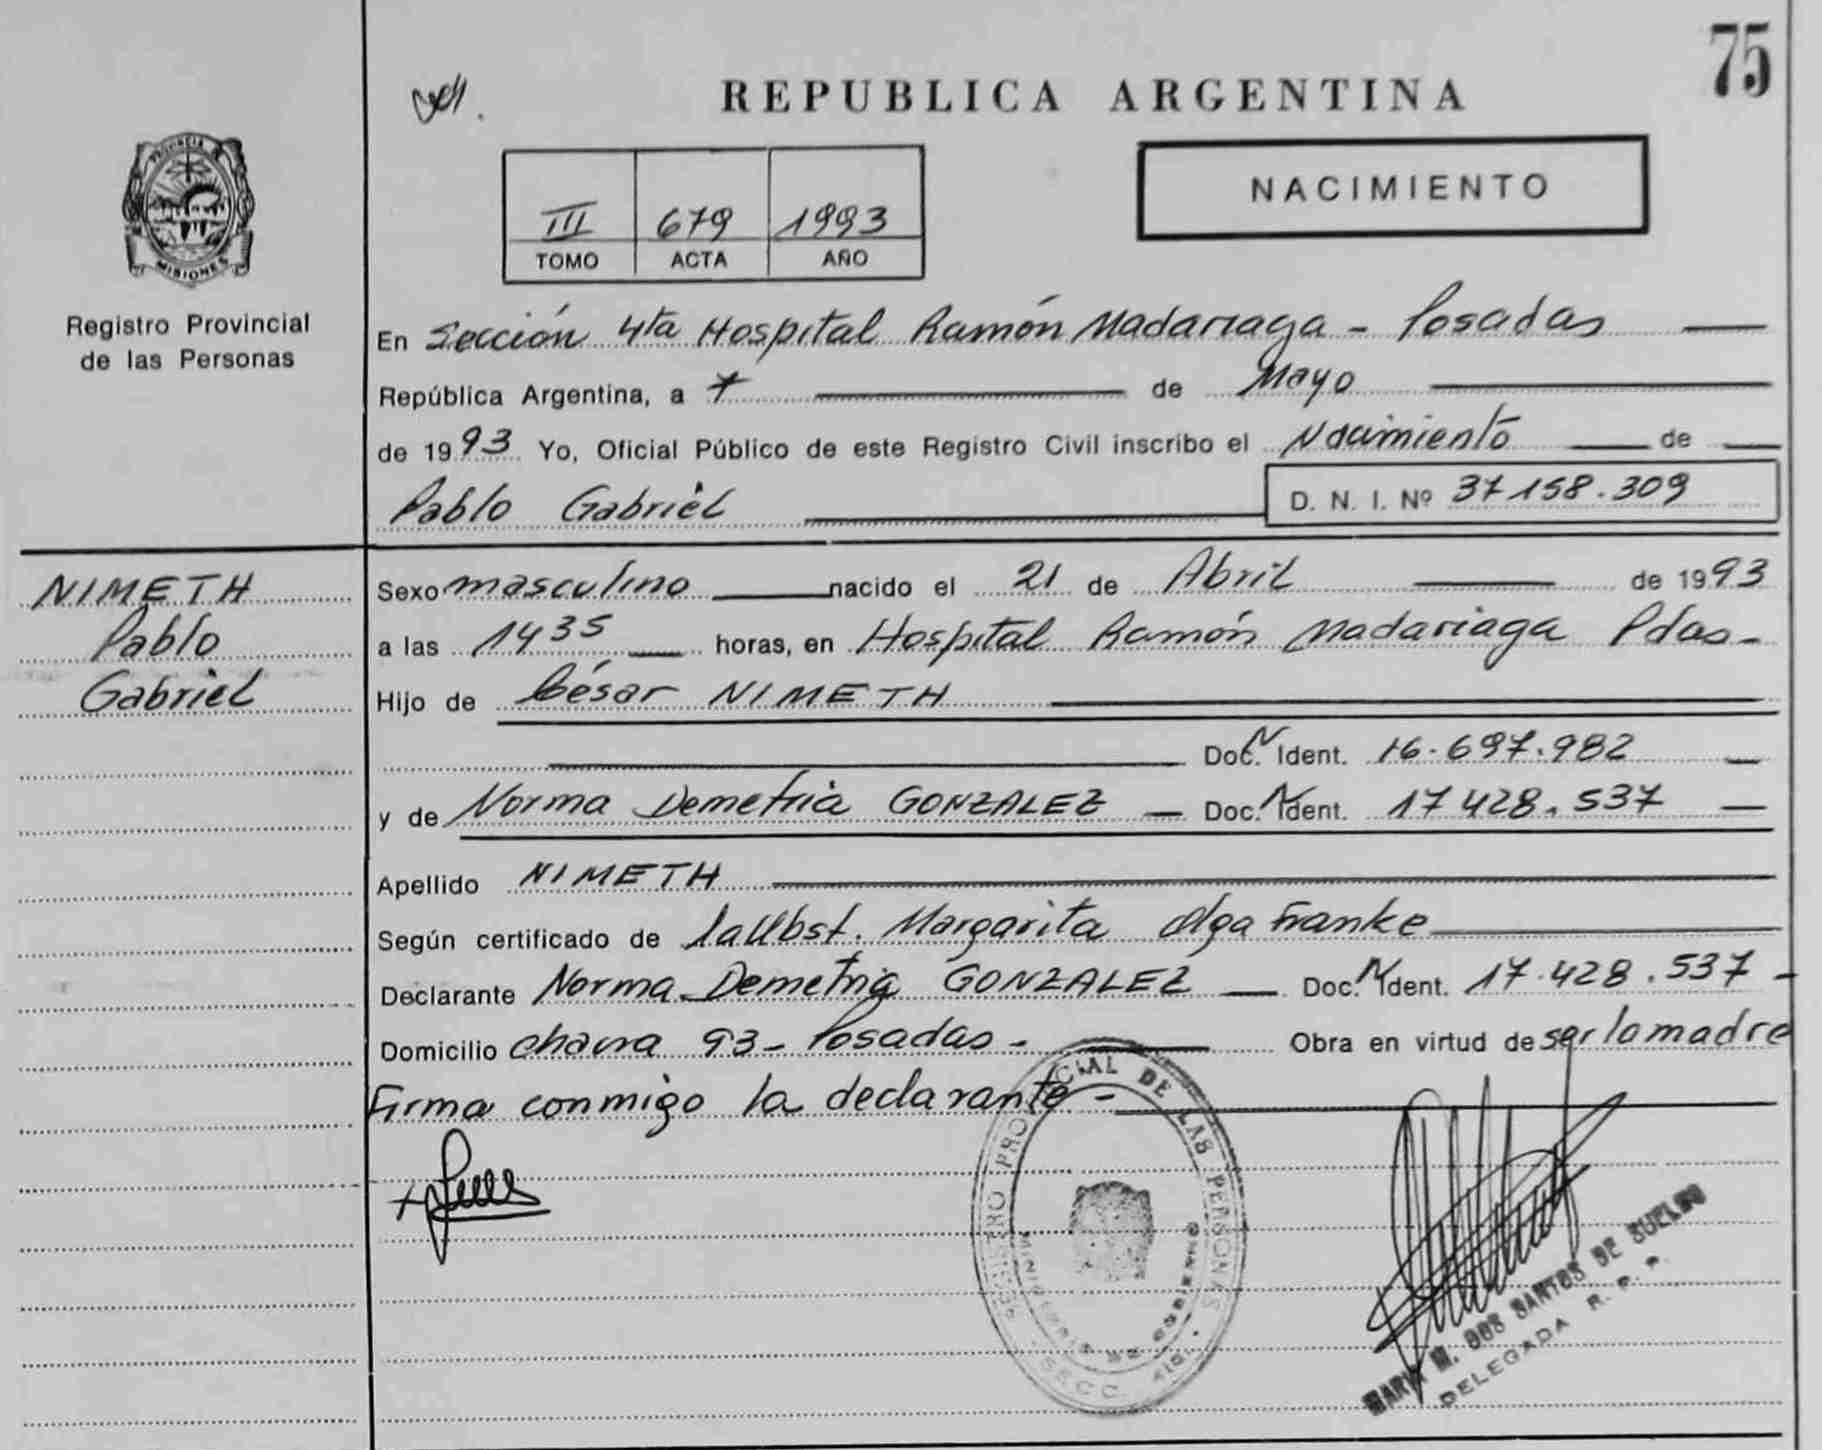 75
REPUBLICA ARGENTINA
NACIMIENTO
III 679 1993
TOMO ACTA AÑO
PROVINCIA DE
MISIONES
Registro Provincial
de las Personas
En Sección 4ta Hospital Ramón Madariaga - Posadas
República Argentina, a 7 de Mayo
de 1993 Yo, Oficial Público de este Registro Civil inscribo el Nacimiento de
Pablo Gabriel D. N. I. Nº 37158.309
NIMETH
Pablo
Gabriel
Sexo masculino nacido el 21 de Abril de 1993
a las 1435 horas, en Hospital Ramón Madariaga Pdas-
Hijo de César NIMETH
Doc. Ident. 16.697.982
y de Norma Demetria GONZALEZ - Doc. Ident. 17428.537
Apellido NIMETH
Según certificado de Margarita Olga Franke
Declarante Norma Demetria GONZALEZ - Doc. Ident. 17.428.537 -
Domicilio chacra 93 - Posadas - Obra en virtud de ser la madre
Firma conmigo la declarante -
REGISTRO PROVINCIAL DE LAS PERSONAS
MINISTERIO DE GOBIERNO
SECC. 4ta.
MARIA M. DOS SANTOS DE SUELDO
DELEGADA R. P. P.